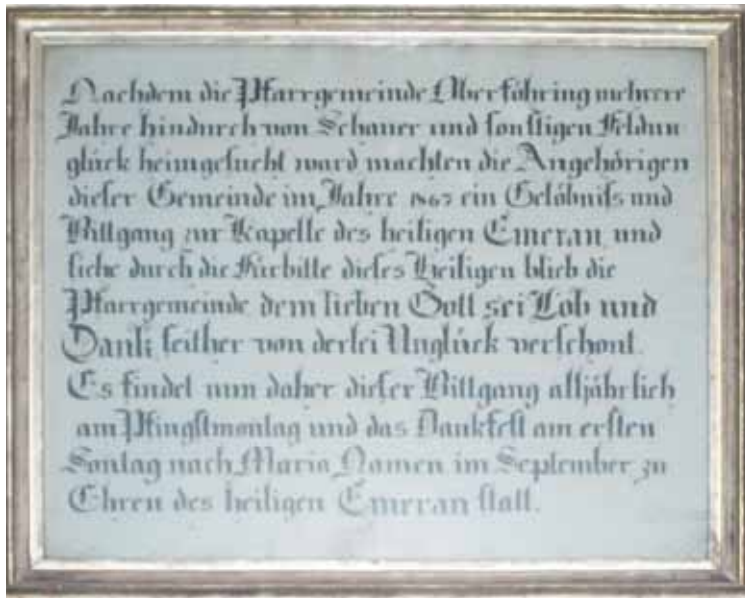 Nachdem die Pfarrgemeinde Oberföhring mehrere
Jahre hindurch von Schauer und sonstigen Feldun
glück heimgesucht ward machten die Angehörigen
dieser Gemeinde im Jahre 1867 ein Gelöbniß und
Bittgang zur Kapelle des heiligen Emeran und
siehe durch die Fürbitte dieses Heiligen blieb die
Pfarrgemeinde dem lieben Gott sei Lob und
Dank seither von derlei Unglück verschont.
Es findet nun daher dieser Bittgang alljährlich
am Pfingstmontag und das Dankfest am ersten
Sontag nach Maria Namen im September zu
Ehren des heiligen Emeran statt.